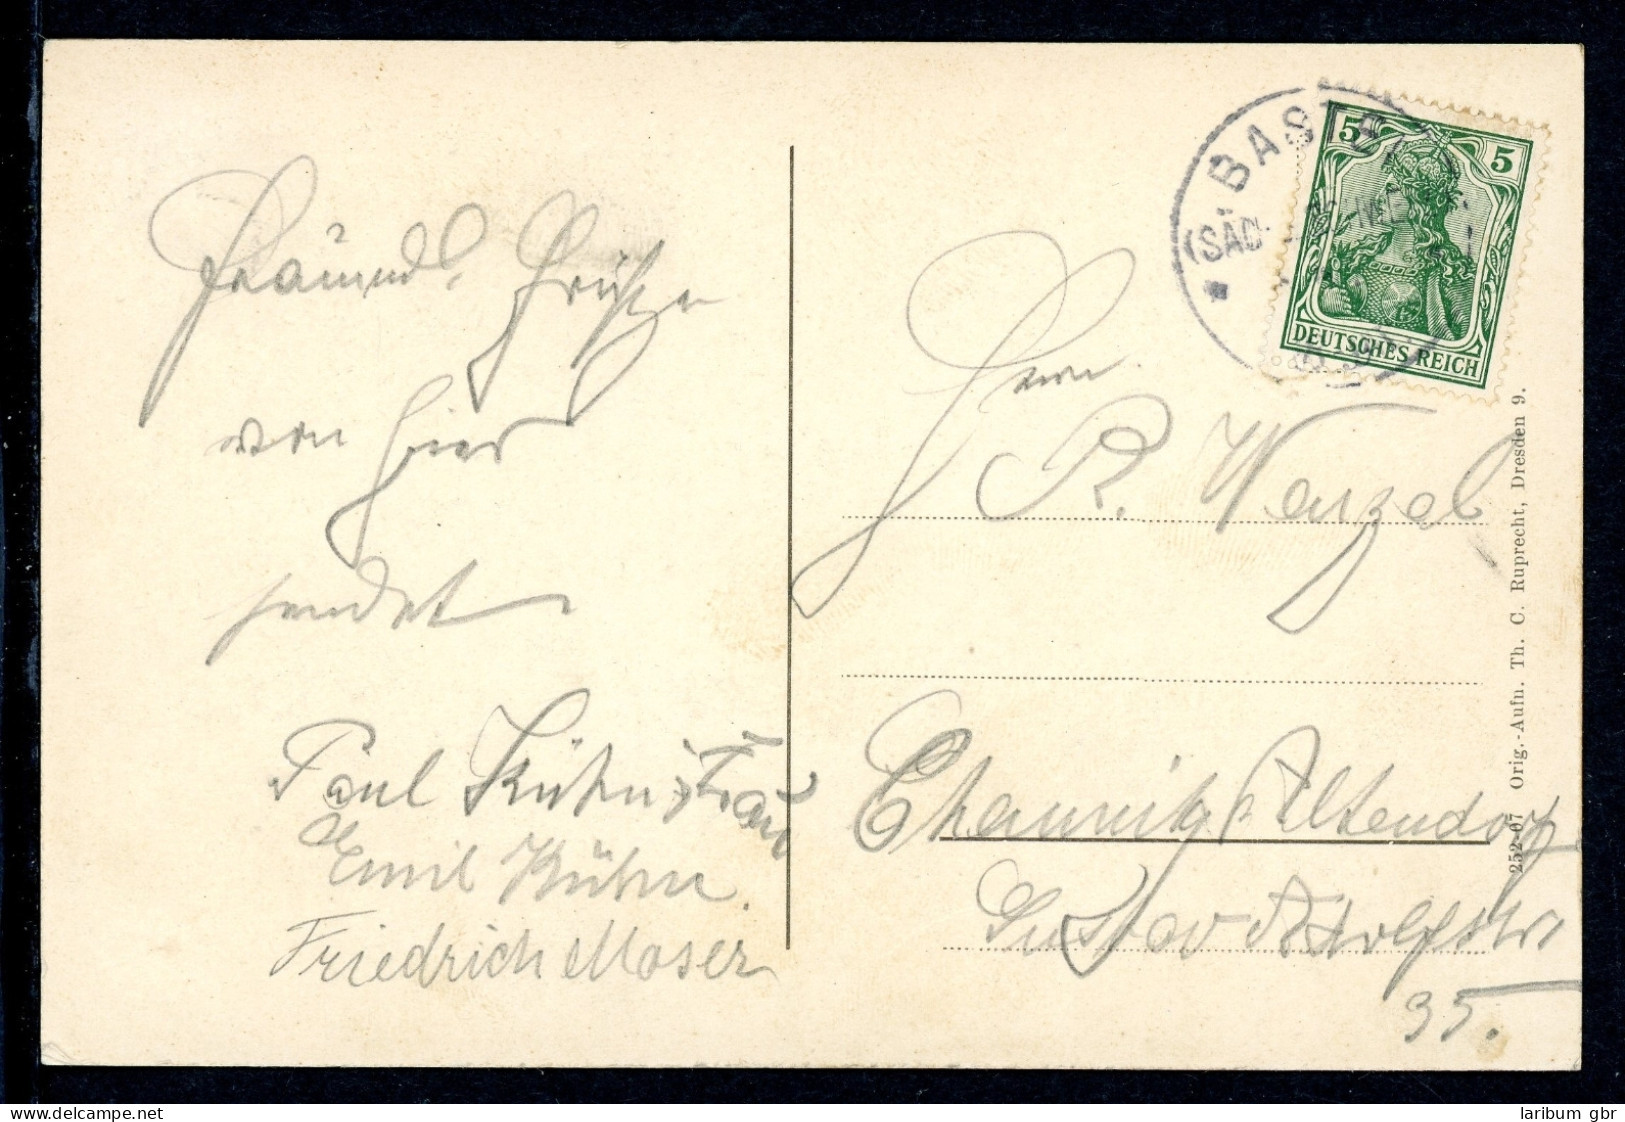 Freundl. Grüße
von hier
sendet
Paul Kühn u. Frau
Emil Kühn.
Friedrich Moser
BASTEI
(SÄCH. SCHWEIZ)
5 5
DEUTSCHES REICH
Herrn
R. Wenzel
Chemnitz Altendorf
Gustav Adolfstr
35.
252-07 Orig.-Aufn. Th. C. Ruprecht, Dresden 9.
laribum gbr